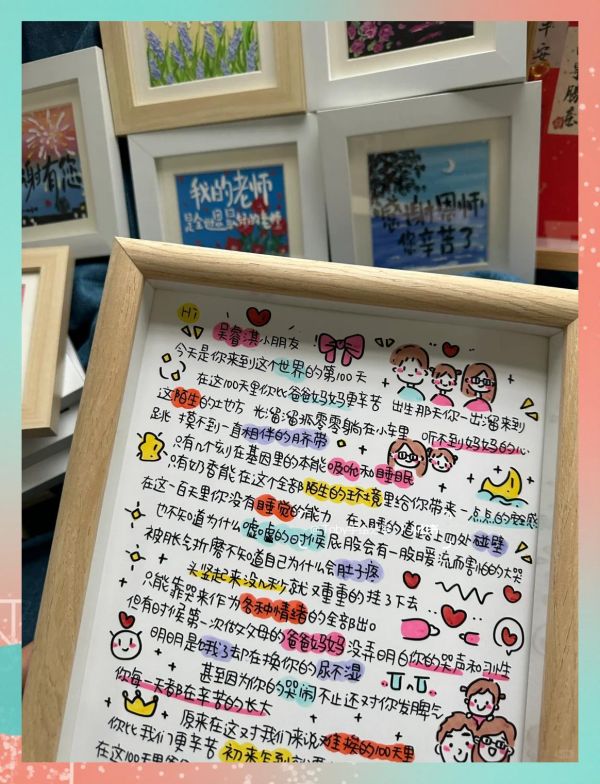 早安
谢有您
我的老师
是全世界最好的老师
感谢恩师
您辛苦了
Hi
吴睿淇小朋友
今天是你来到这个世界的第100天
在这100天里你比爸爸妈妈更辛苦 出生那天你一出溜来到
这陌生的地方 光溜溜孤零零躺在小车里 听不到妈妈的心
跳 摸不到一直相伴的脐带
只有几个刻在基因里的本能吸吮和睡眠
只有奶香能在这个全部陌生的环境里给你带来一点点的安全感
在这一百天里你没有睡觉的能力 在入睡的道路上四处碰壁
也不知道为什么嘘嘘的时候屁股会有一股暖流而害怕的大哭
被胀气折磨不知道自己为什么会肚子疼
头竖起来没几秒就又重重的挂了下去
只能靠哭来作为各种情绪的全部出口
但有时候第一次做父母的爸爸妈妈没弄明白你的哭声和习性
明明是饿了却在换你的尿不湿
甚至因为你的哭闹不止还对你发脾气
你每一天都在辛苦的长大
原来在这对我们来说难挨的100天里
你比我们更辛苦 初来乍到
在这100天里